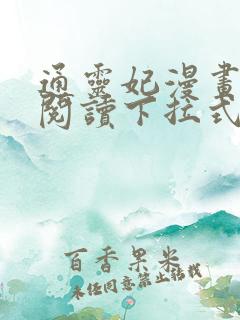 通靈妃漫畫
閱讀下拉式
百香果米
未經同意禁止轉載